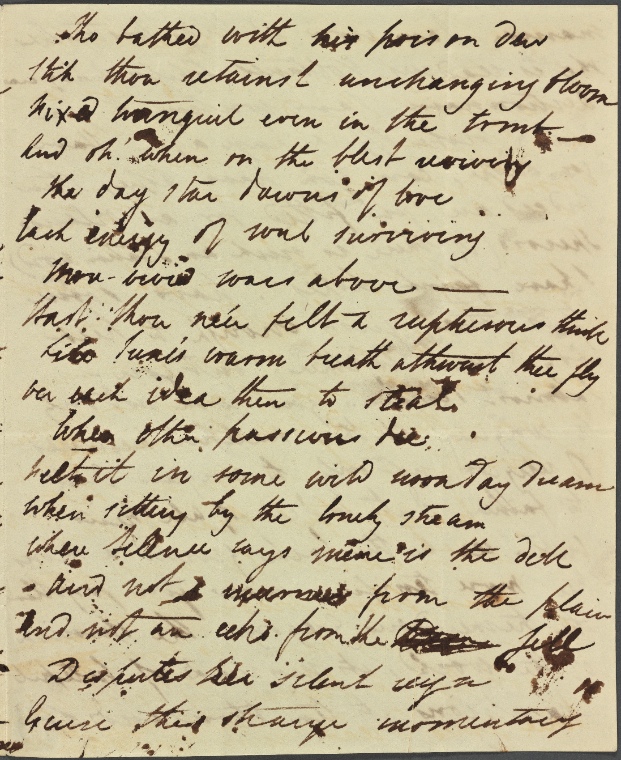 Tho bathed with his poison dew
Still thou retainst unchanging bloom
Fixed tranquil even in the tomb —
And oh! when on the blest reviving
The day star dawns of love
Each energy of soul surviving
More vivid soars above —
Hast thou neer felt a rapturous thrill
Like Junes warm breath athwart thee fly
Oer each idea then to steal
When other passions die
Felt it in some wild noonday dream
When sitting by the lonely stream
Where Silence says mine is the dell
And not a murmur from the plain
And not an echo from the fell
Disputes her silent reign
this strange momentary